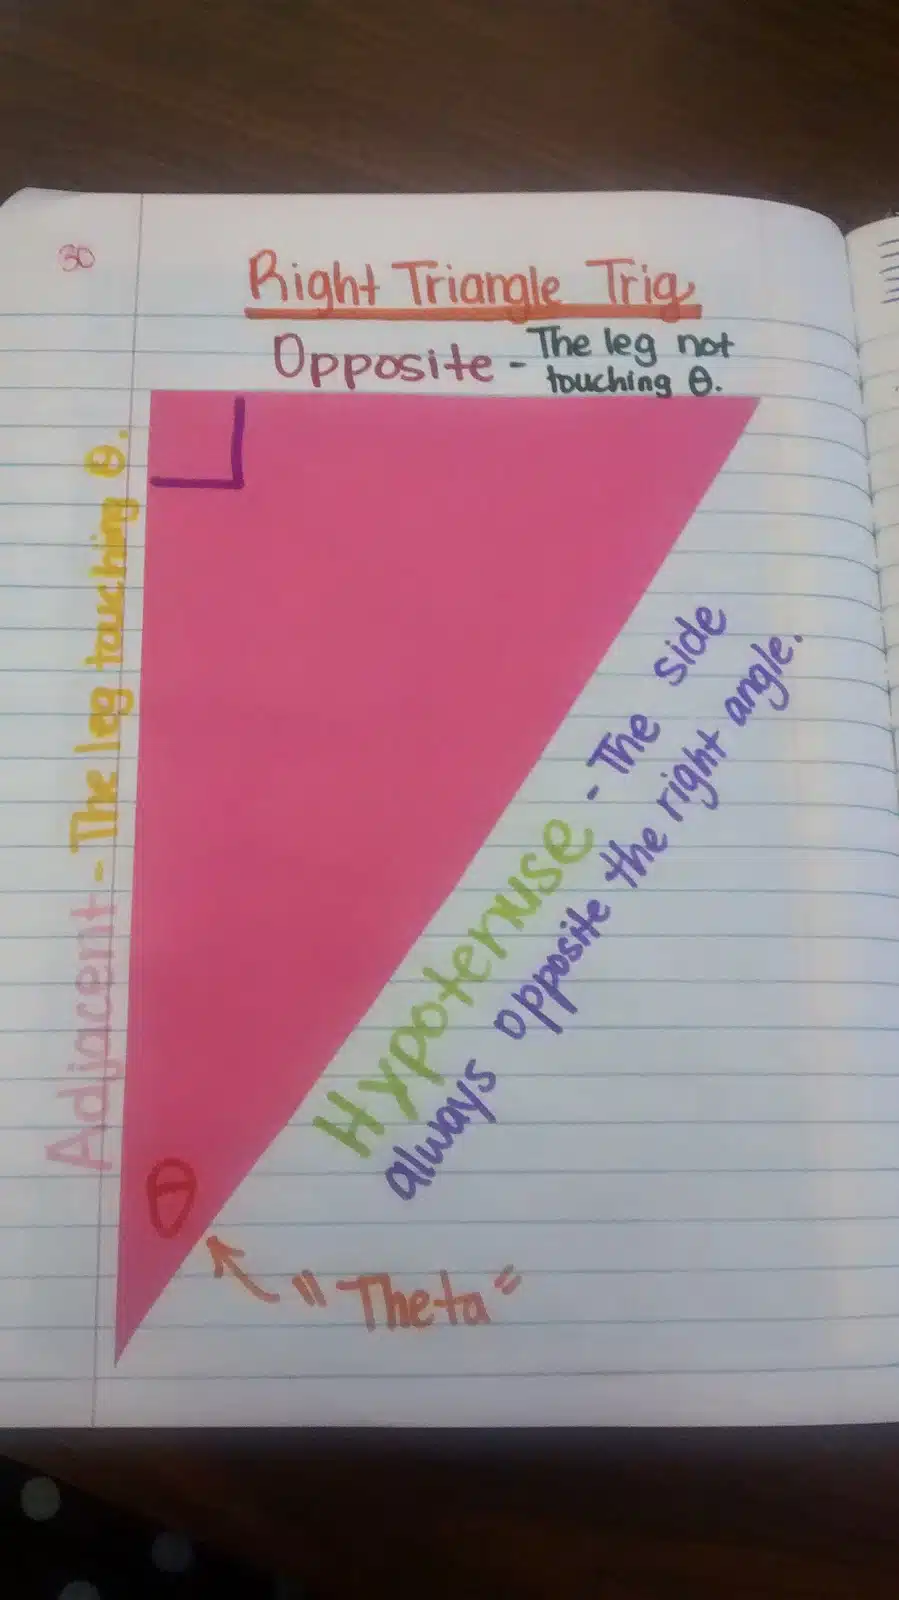 30
Right Triangle Trig
Opposite - The leg not
touching θ.
Adjacent - The leg touching θ.
Hypotenuse - The side
always opposite the right angle.
θ
"Theta"